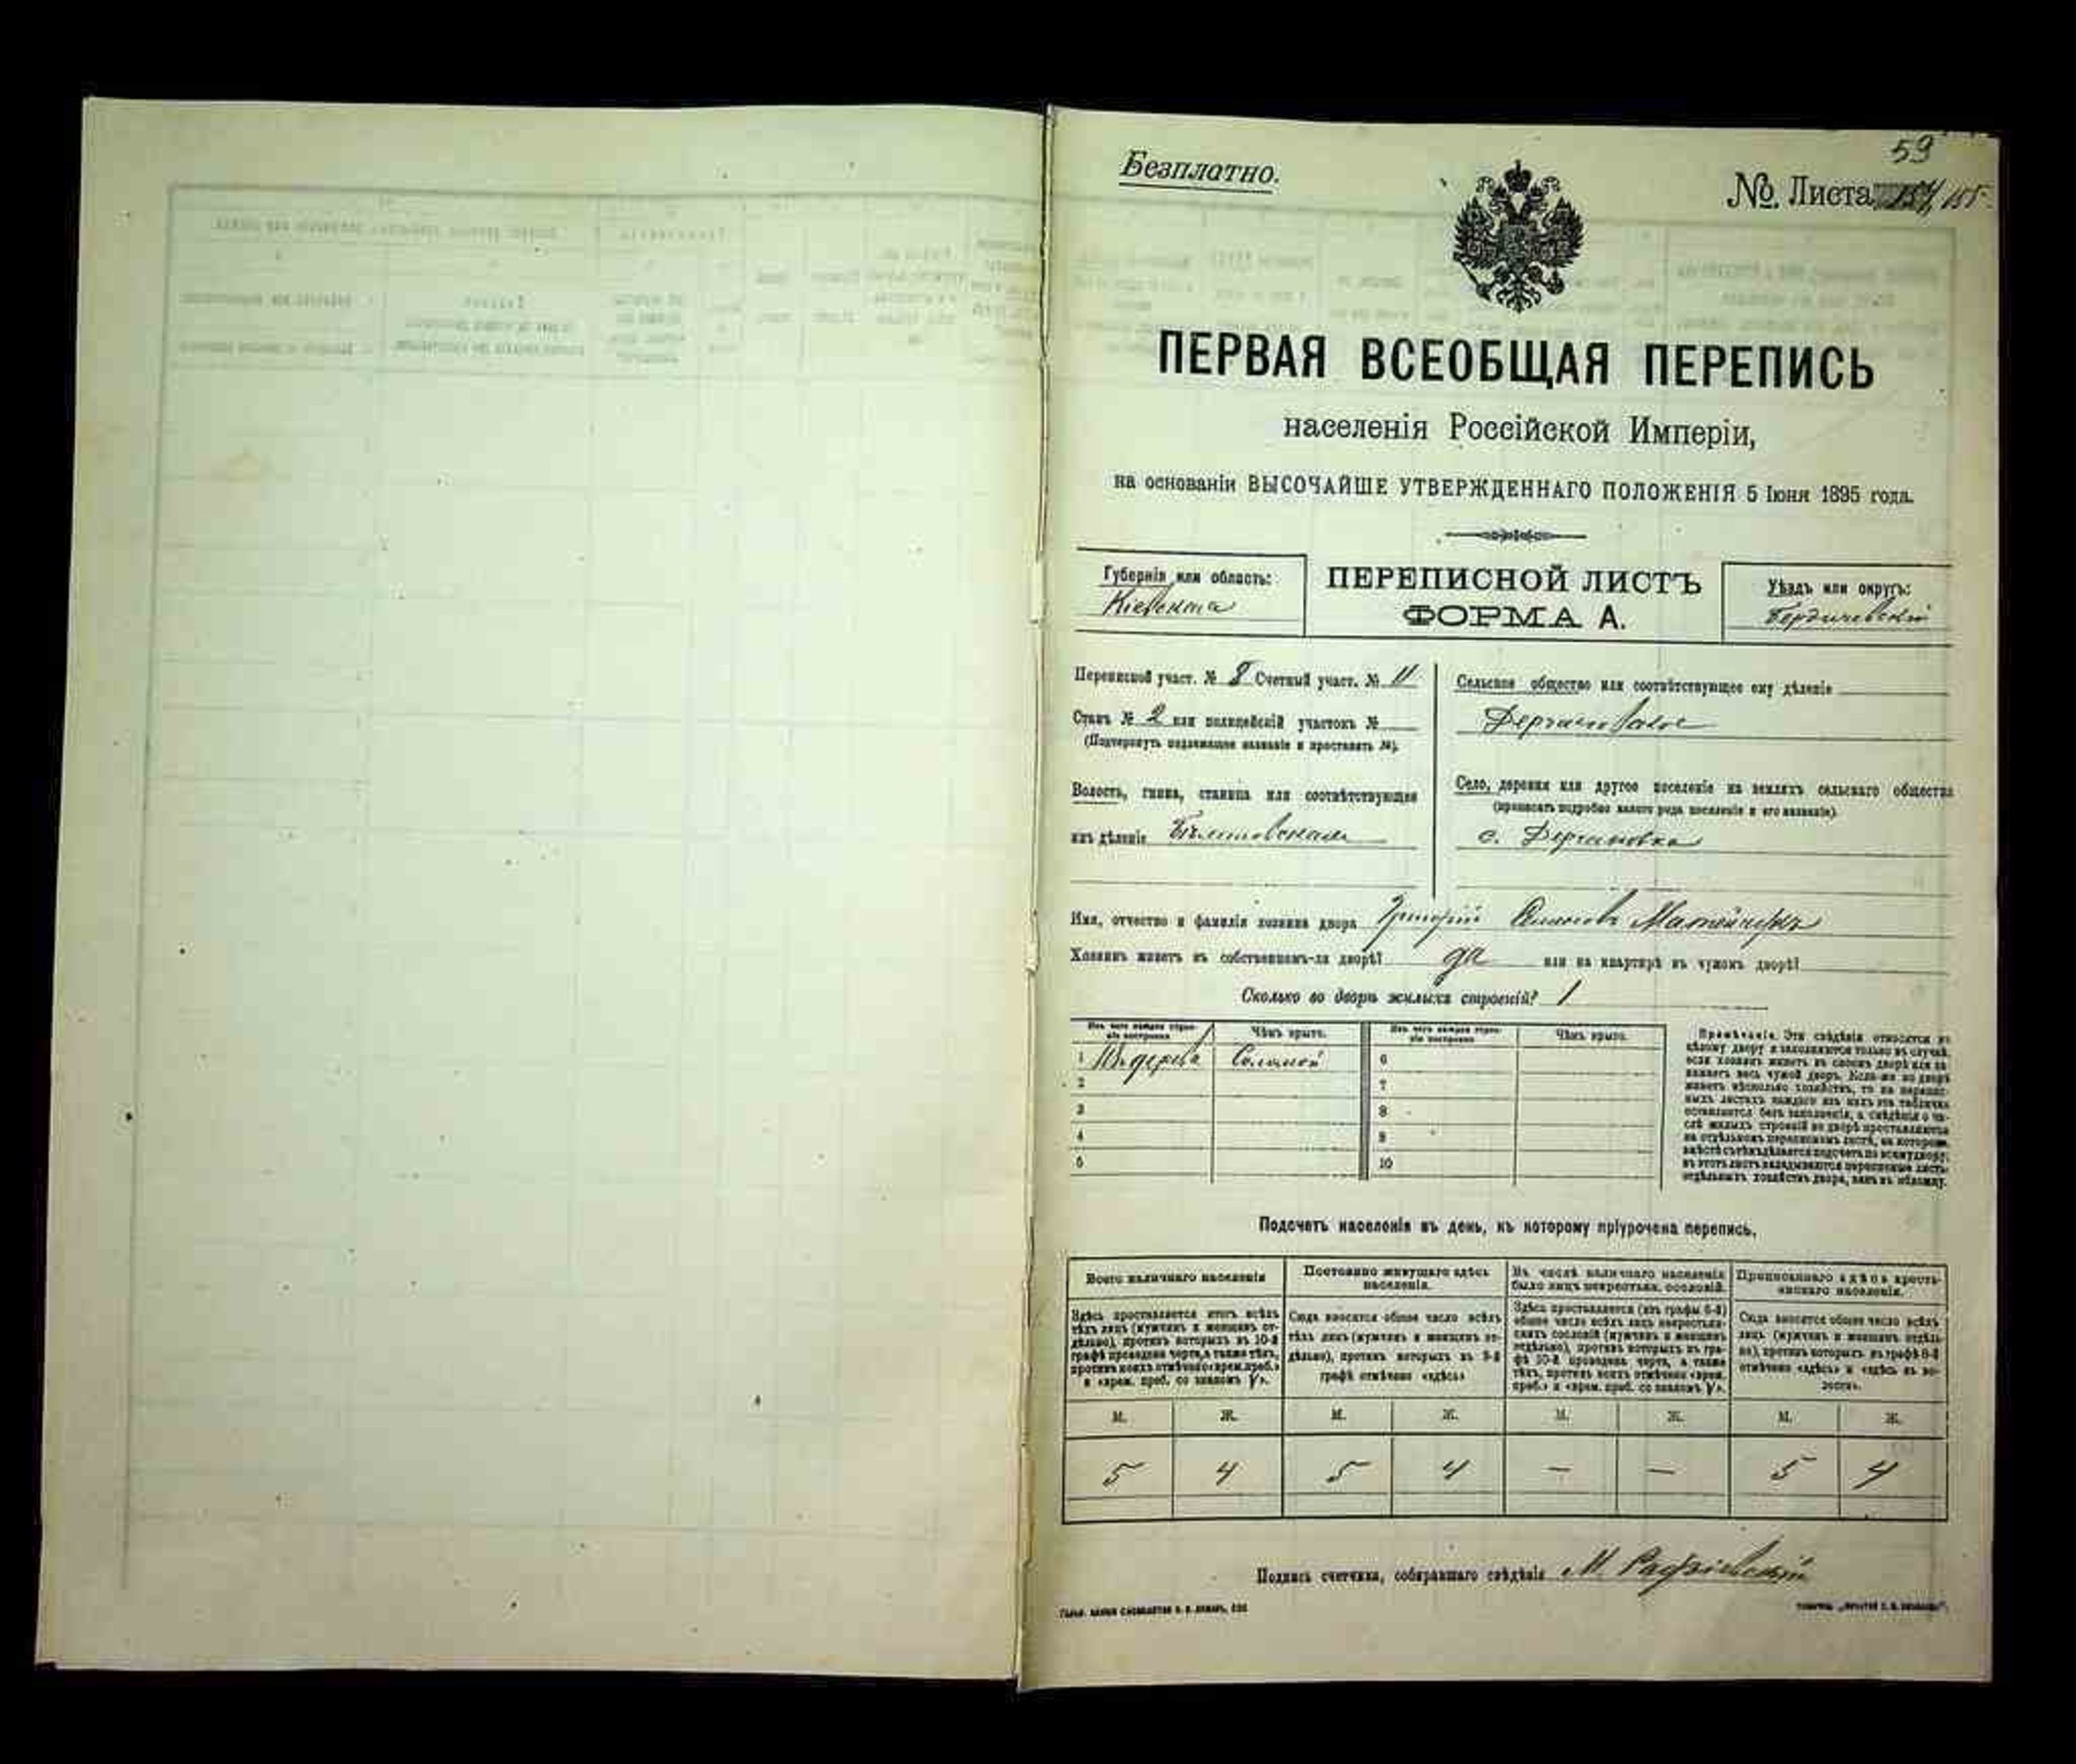 59
Безплатно.
№. Листа 155.
ПЕРВАЯ ВСЕОБЩАЯ ПЕРЕПИСЬ
населенія Россійской Имперіи,
на основаніи ВЫСОЧАЙШЕ УТВЕРЖДЕННАГО ПОЛОЖЕНІЯ 5 Іюня 1895 года.
Губернія или область:
Кіевская
ПЕРЕПИСНОЙ ЛИСТЪ
ФОРМА А.
Уѣздъ или округъ:
Бердичевскій
Переписной участ. № 8 Счетный участ. № 11
Станъ № 2 или полицейскій участокъ №
(Подчеркнуть надлежащее названіе и проставить №).
Волость, гмина, станица или соотвѣтствующее
имъ дѣленіе
Сельское общество или соотвѣтствующее ему дѣленіе
Село, деревня или другое поселеніе на земляхъ сельскаго общества
(прописать подробно какого рода поселеніе и его названіе).
с.
Имя, отчество и фамилія хозяина двора Григорій
Хозяинъ живетъ въ собственномъ-ли дворѣ? да или на квартирѣ въ чужомъ дворѣ?
Сколько во дворѣ жилыхъ строеній? 1
Изъ чего каждое строеніе построено Чѣмъ крыто. Изъ чего каждое строеніе построено Чѣмъ крыто.
1 Изъ дерева Соломой 6
2 7
3 8
4 9
5 10
Примѣчаніе. Эти свѣдѣнія относятся къ
цѣлому двору и заполняются только въ случаѣ,
если хозяинъ живетъ въ своемъ дворѣ или за-
нимаетъ весь чужой дворъ. Если-же во дворѣ
живетъ нѣсколько хозяйствъ, то на перепис-
ныхъ листахъ каждаго изъ нихъ эта табличка
оставляется безъ заполненія, а свѣдѣнія о чи-
слѣ жилыхъ строеній во дворѣ проставляются
на отдѣльномъ переписномъ листѣ, на которомъ
вмѣстѣ съ тѣмъ дѣлается подсчетъ по всему двору;
въ этотъ листъ вкладываются переписные листы
отдѣльныхъ хозяйствъ двора, какъ въ обложку.
Подсчетъ населенія въ день, къ которому пріурочена перепись.
Всего наличнаго населенія
Здѣсь проставляется итогъ всѣхъ
тѣхъ лицъ (мужчинъ и женщинъ от-
дѣльно), противъ которыхъ въ 10-й
графѣ проведена черта, а также тѣхъ,
противъ коихъ отмѣчено «врем. преб.»
и «врем. преб. со знакомъ V».
Постоянно живущаго здѣсь
населенія.
Сюда вносится общее число всѣхъ
тѣхъ лицъ (мужчинъ и женщинъ от-
дѣльно), противъ которыхъ въ 9-й
графѣ отмѣчено «здѣсь»
Въ числѣ наличнаго населенія
было лицъ некрестьян. сословій.
Здѣсь проставляется (изъ графы 6-й)
общее число всѣхъ лицъ некрестьян-
скихъ сословій (мужчинъ и женщинъ
отдѣльно), противъ которыхъ въ гра-
фѣ 10-й проведена черта, а также
тѣхъ, противъ коихъ отмѣчено «врем.
преб.» и «врем. преб. со знакомъ V».
Приписаннаго здѣсь кресть-
янскаго населенія.
Сюда вносится общее число всѣхъ
лицъ (мужчинъ и женщинъ отдѣль-
но), противъ которыхъ въ графѣ 8-й
отмѣчено «здѣсь» и «здѣсь въ во-
лости».
М. Ж. М. Ж. М. Ж. М. Ж.
5 4 5 4 — — 5 4
Подпись счетчика, собиравшаго свѣдѣнія М.